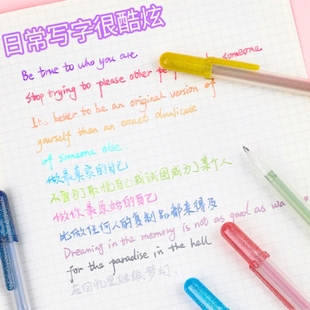 日常写字很酷炫
Be true to who you are.
Stop trying to please other pe someone
It's better to be an original version of
yourself than an exact duplicate
of someone else.
做最真实的自己
不要为了取悦自己或试图成为了某个人
做你最原始的自己
比做任何人的复制品都来得好
Dreaming in the memory is not as good as wa
for the paradise in the hell